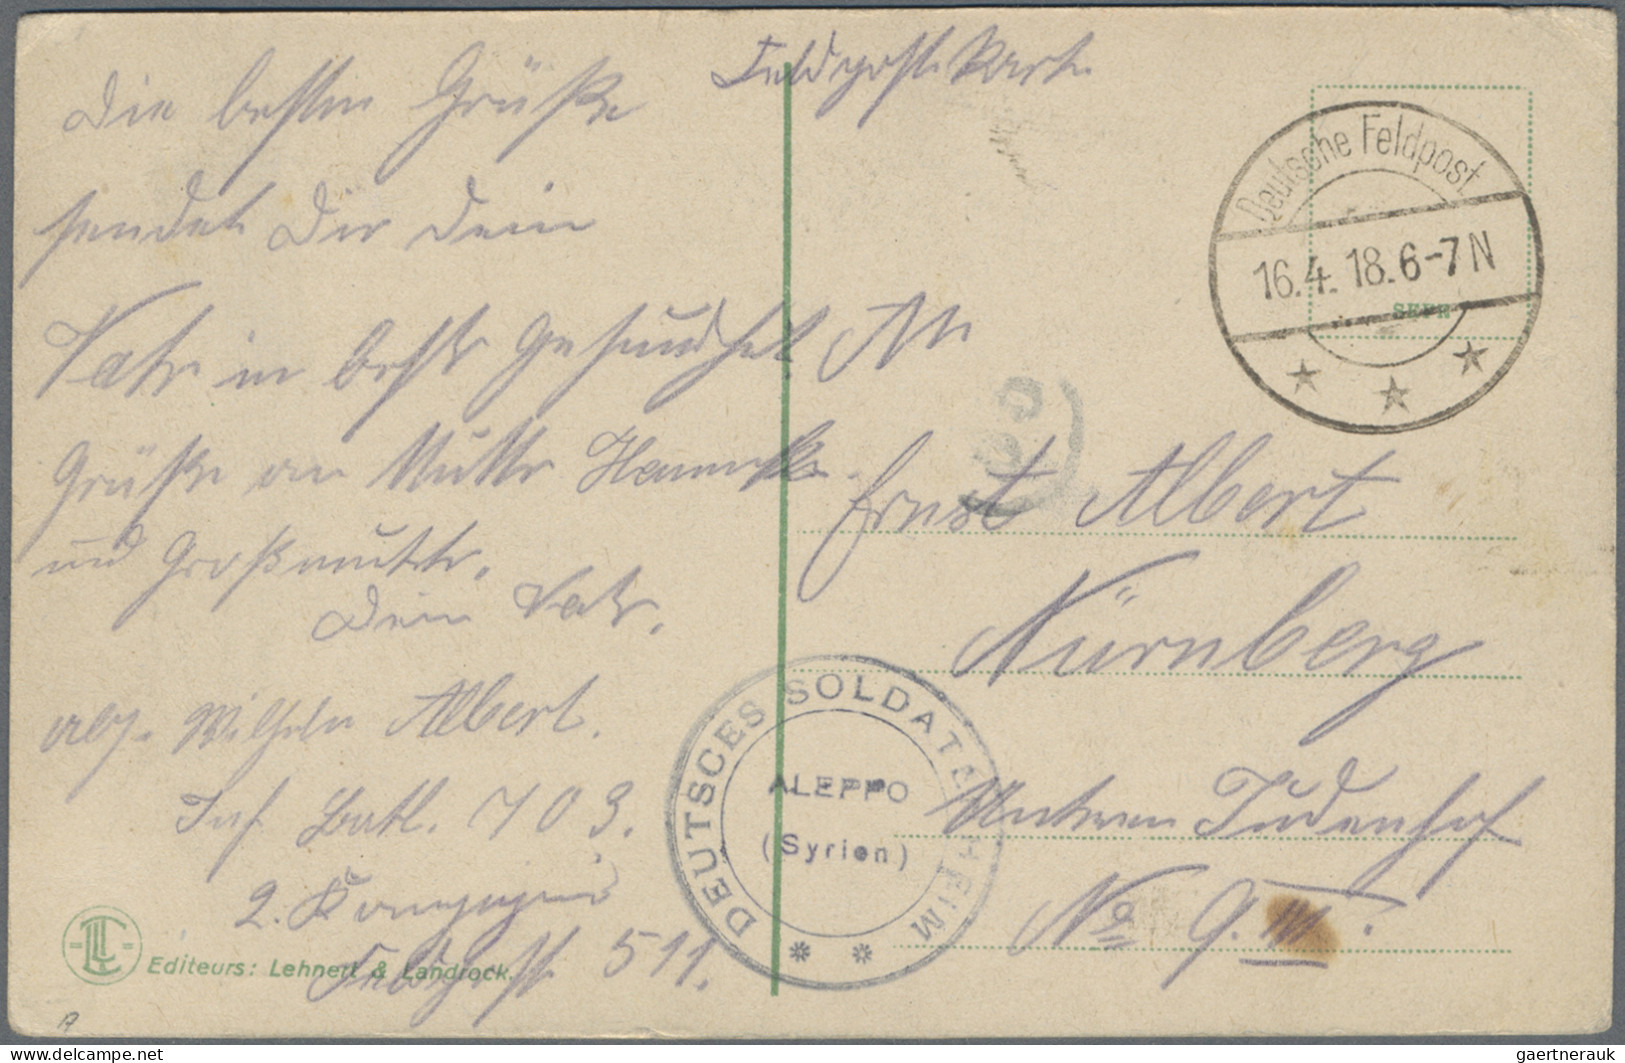 Feldpostkarte
Die besten Grüße
sendet Dir Dein
Vater in bester Gesundheit
Grüße an Mutter
und Großmutter.
Dein Vater.
Wilhelm Albert.
Inf. Batl. 703.
2. Kompagnie
Feldpost 511.
An
Ernst Albert
Nürnberg
Unteren Judenhof
No 9. III.
Deutsche Feldpost
16.4.18.6-7N
DEUTSCES SOLDATENHEIM
ALEPPO
(Syrien)
Editeurs: Lehnert & Landrock.
delcampe.net
gaertnerauk